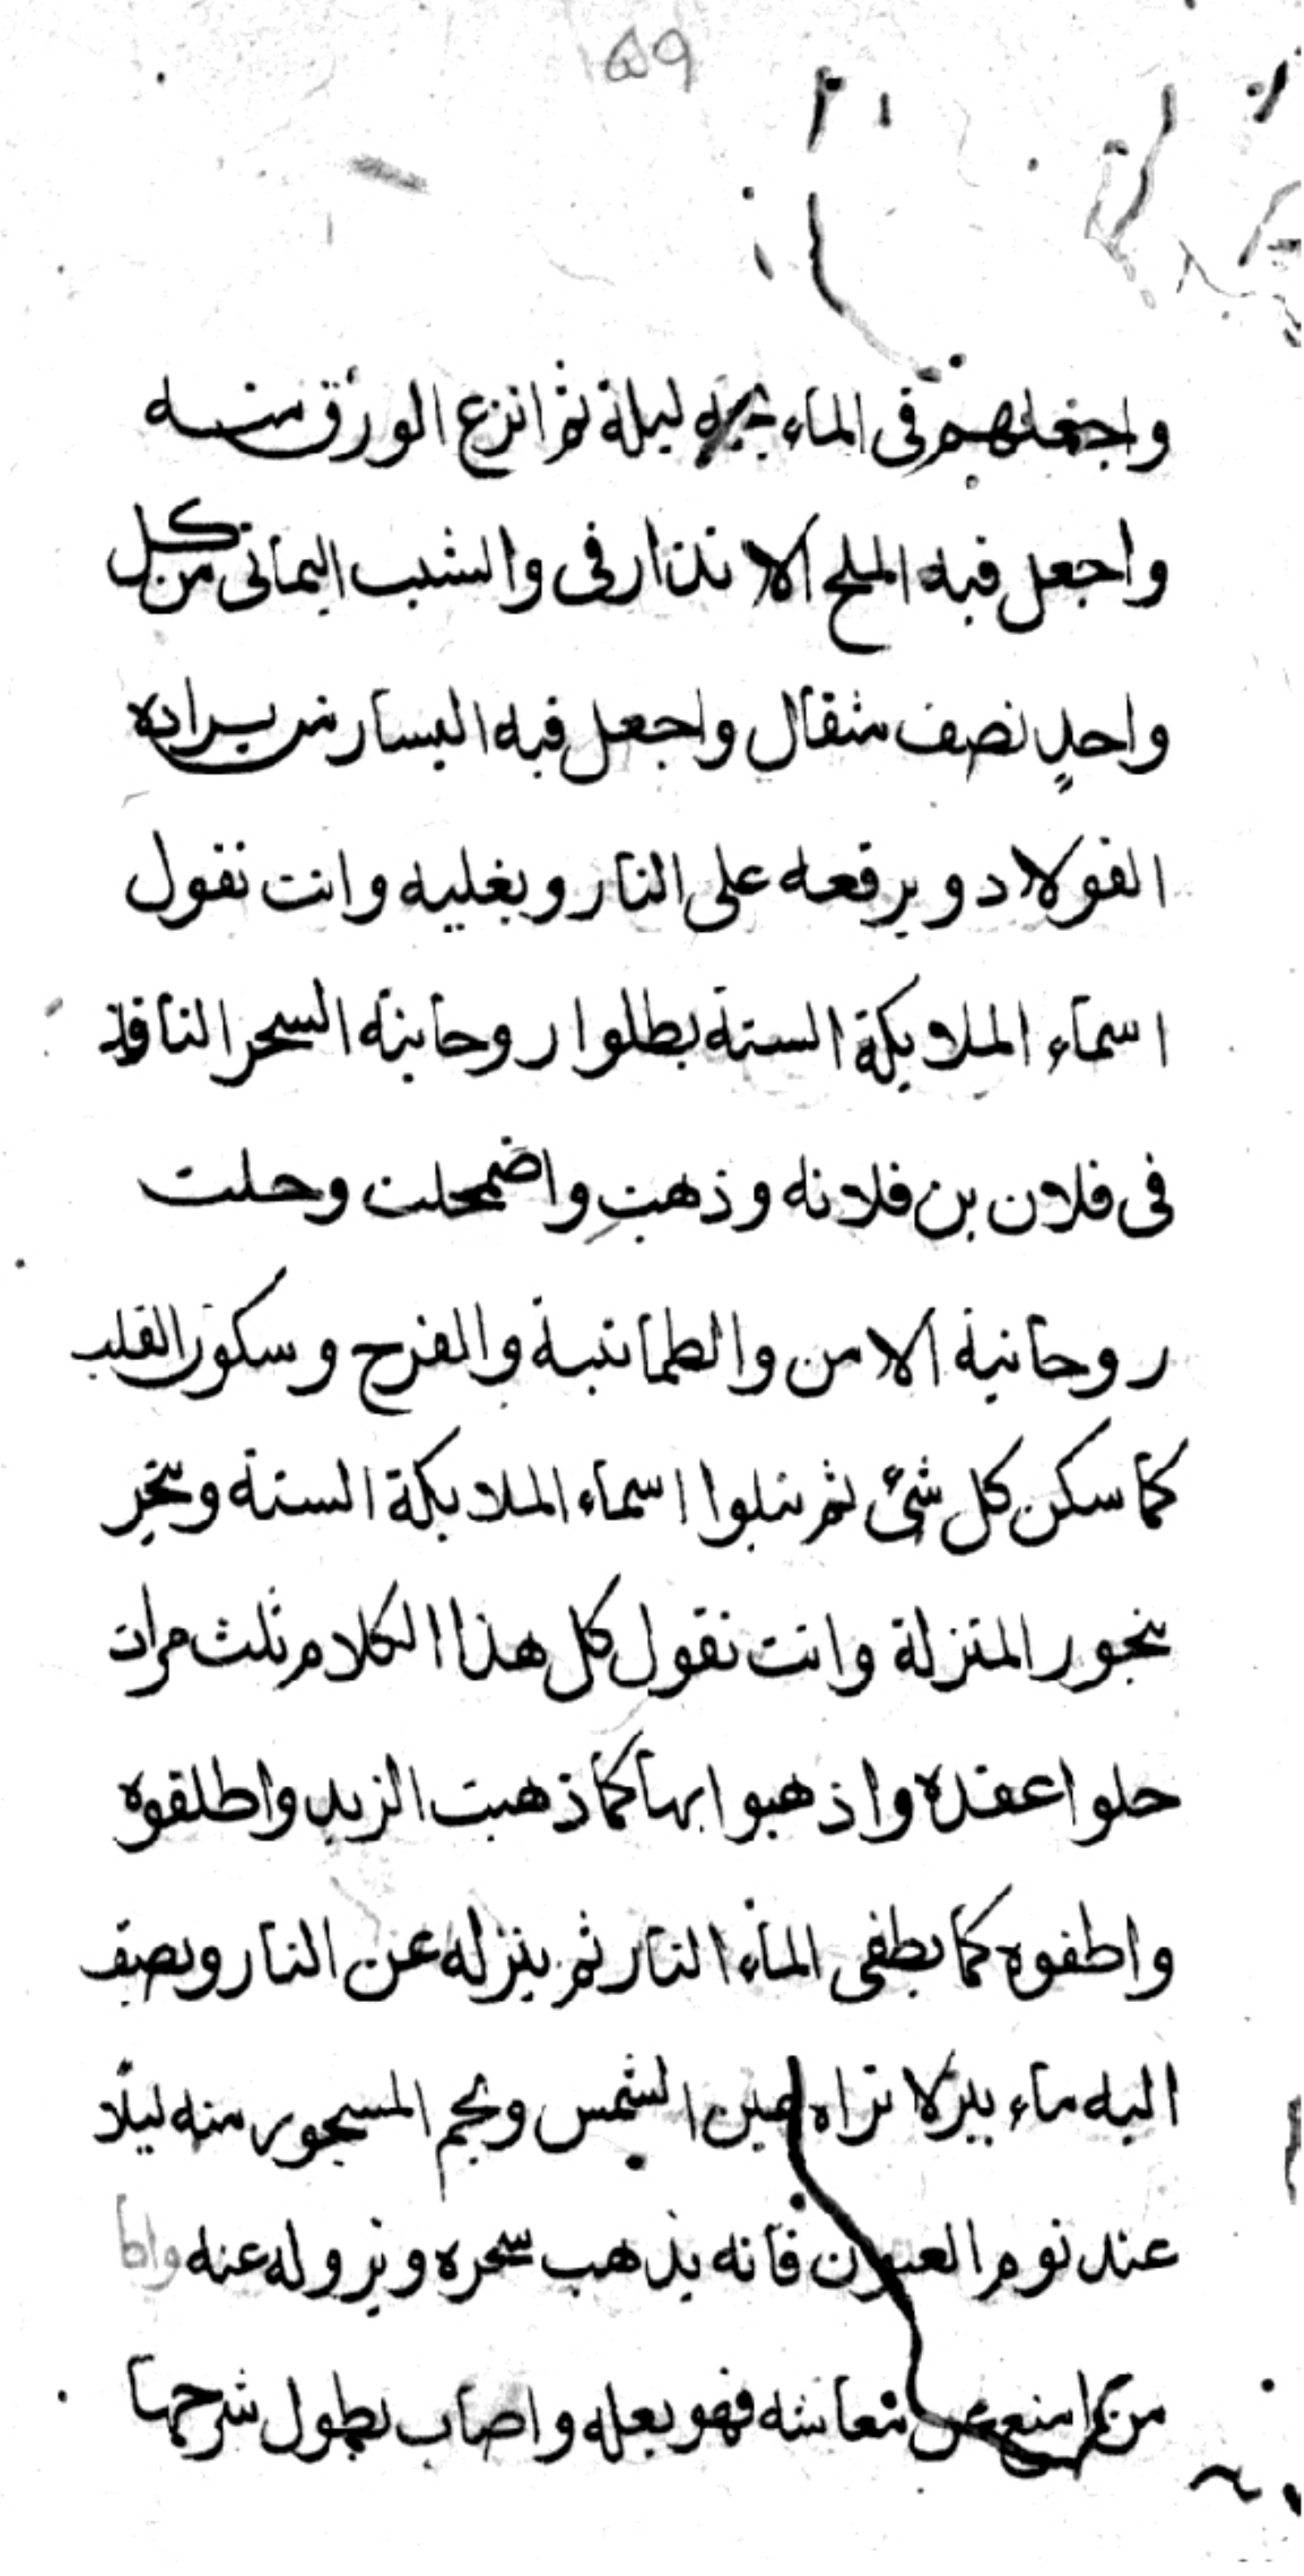 ٥٩
واجعلهم فى الماء ليلة ثم انزع الورق منه
واجعل فيه الملح الاندارفى والشب اليمانى من كل
واحدٍ نصف مثقال واجعل فيه اليسار من براده
الفولاد ويرفعه على النار ويغليه وانت تقول
اسماء الملايكة الستة بطلوا روحانية السحر النافذ
فى فلان بن فلانه وذهبت واضمحلت وحلت
روحانية الامن والطمانية والفرح وسكون القلب
كما سكن كل شئ ثم تتلوا اسماء الملايكة الستة وبخر
بخور المنزلة وانت تقول كل هذا الكلام ثلث مرات
حلوا عقده واذهبوا بها كما ذهبت الزبد واطلقوه
واطفوه كما يطفى الماء النار ثم ينزله عن النار ويصيف
اليه ماء بير لا تراه عين الشمس ويحم المسحور منه ليلًا
عند نوم العيون فانه يذهب سحره ويزوله عنه واما
من منع عن معاشه فهو بعله واصاب يطول شرحها